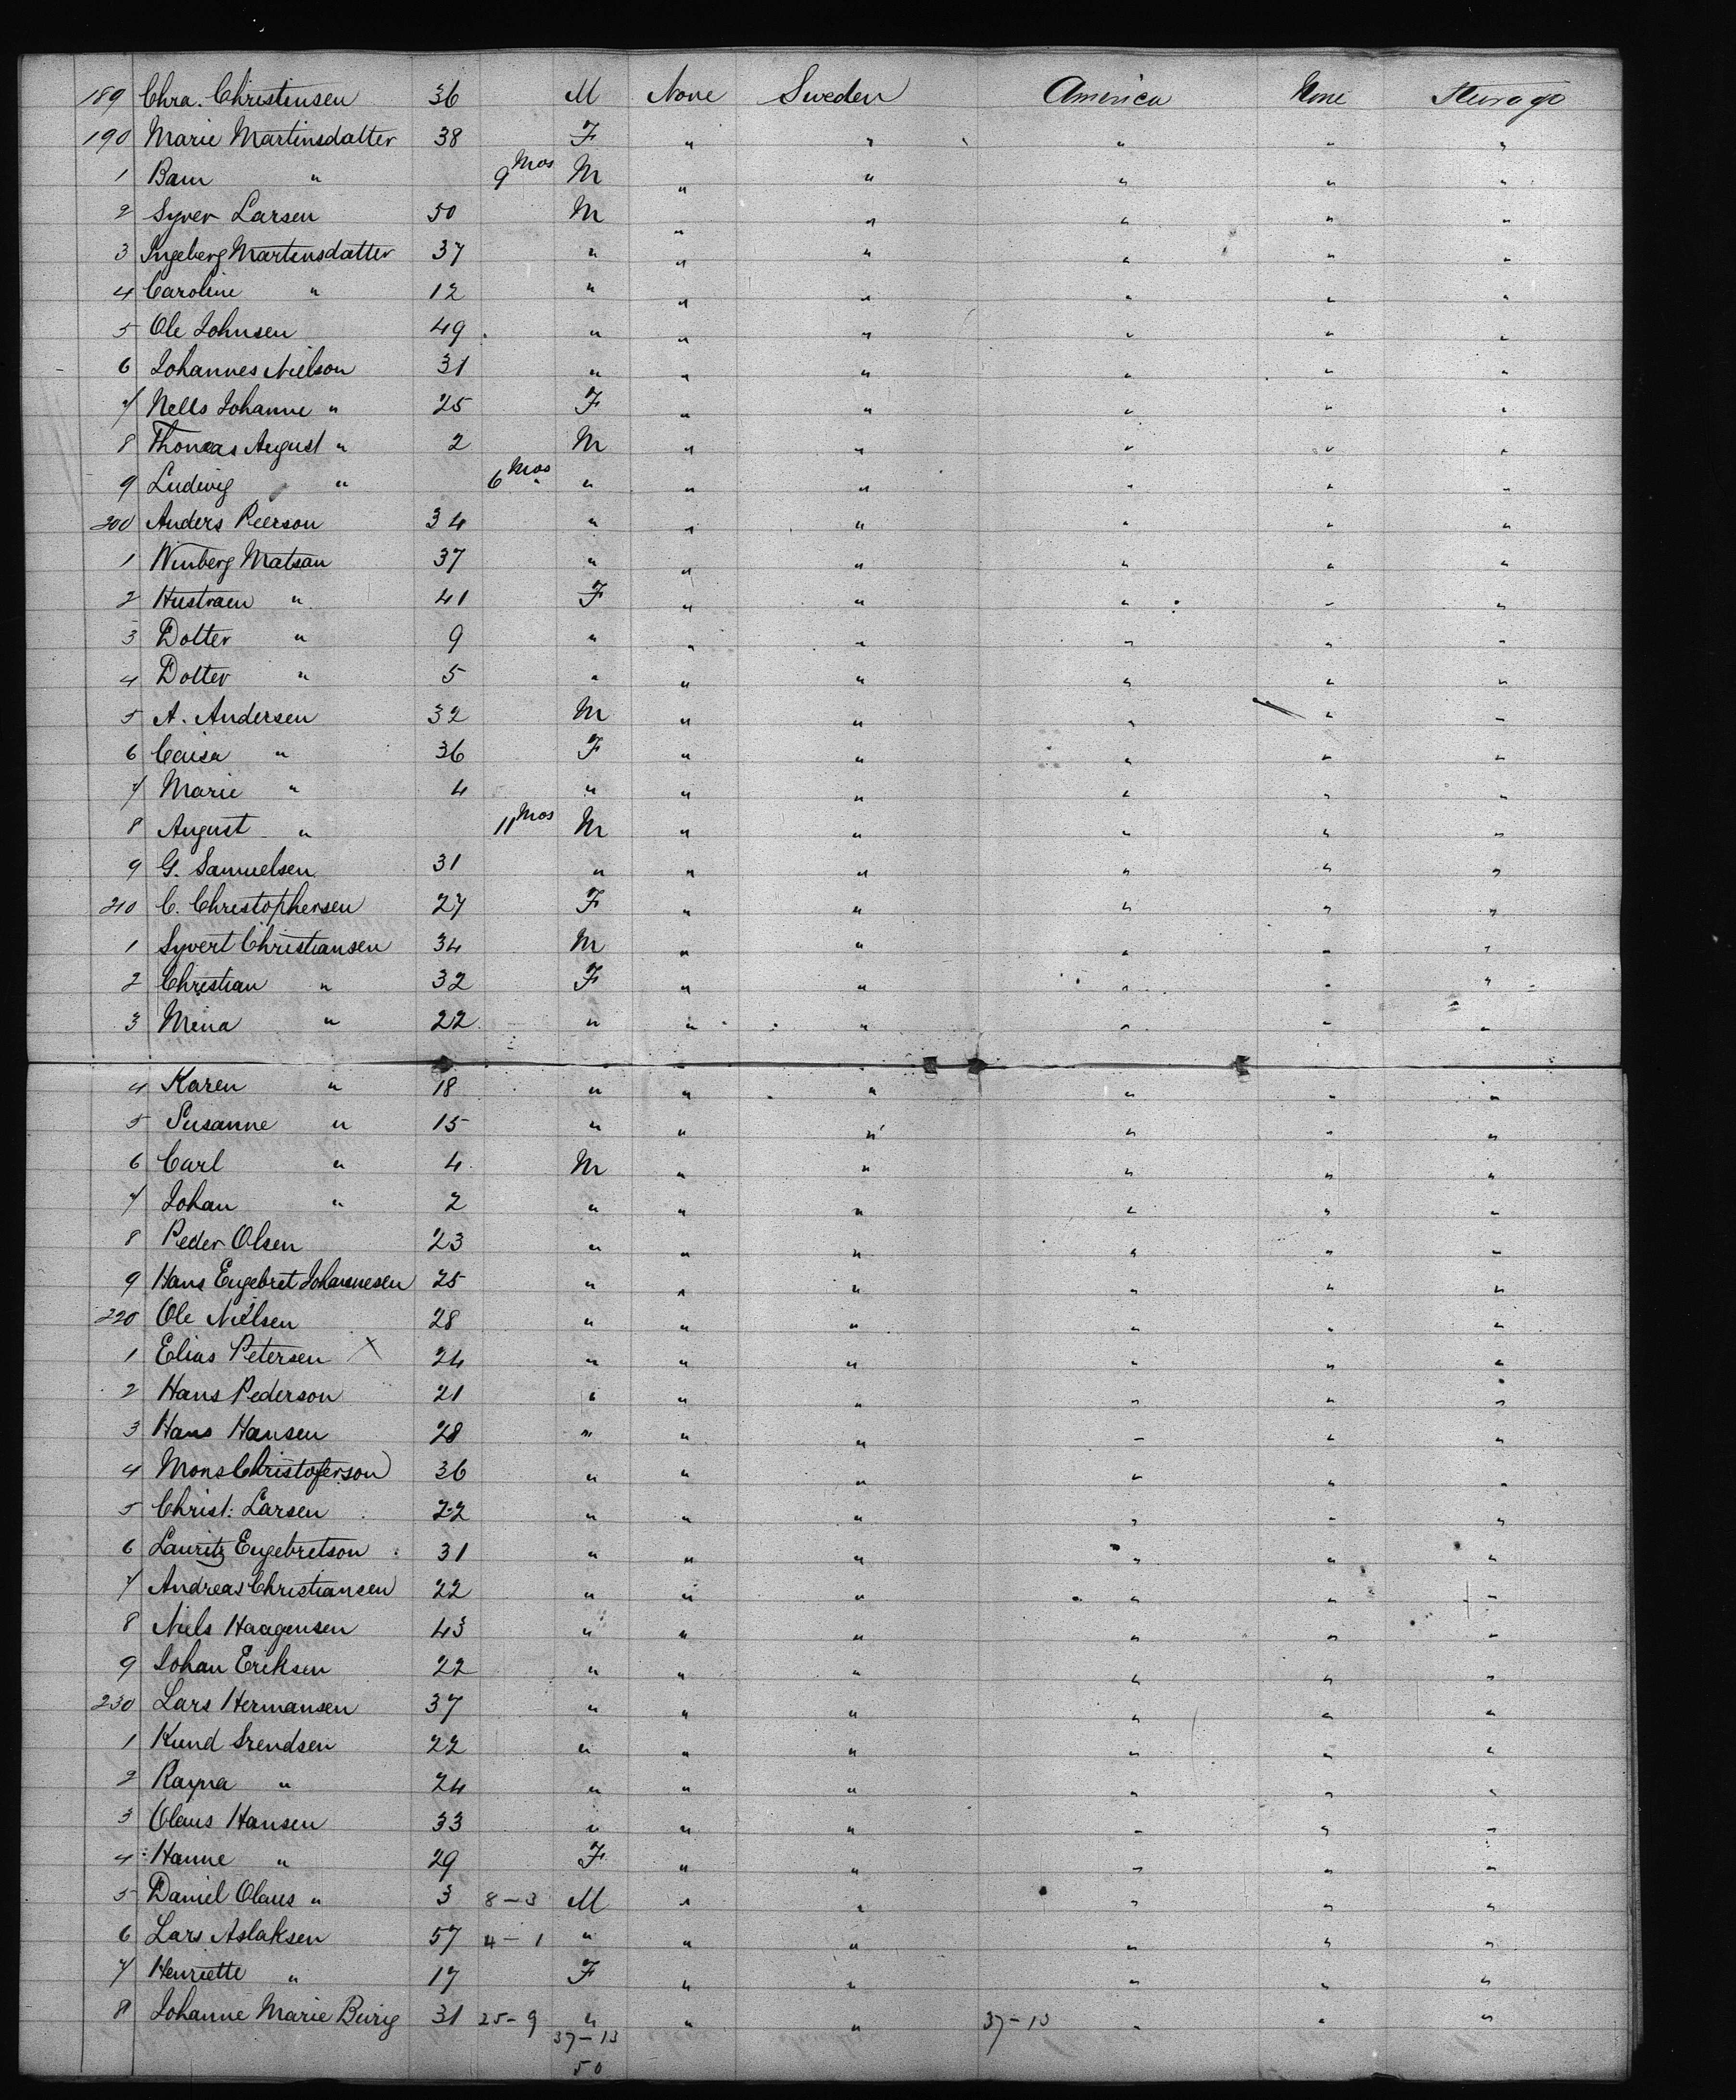 189 Chra. Christinsen 36 M None Sweden America None Steerage
190 Marie Martinsdatter 38 F " " " " "
1 Barn " 9 Mos M " " " " "
2 Syver Larsen 50 M " " " " "
3 Ingeberg Martensdatter 37 " " " " " "
4 Caroline " 12 " " " " " "
5 Ole Johnsen 49 " " " " " "
6 Johannes Nielson 31 " " " " " "
7 Nells Johanne " 25 F " " " " "
8 Thomas August " 2 M " " " " "
9 Ludwig " 6 Mos " " " " " "
200 Anders Peerson 34 " " " " " "
1 Winberg Matsan 37 " " " " " "
2 Hustraen " 41 F " " " " "
3 Dotter " 9 " " " " " "
4 Dotter " 5 " " " " " "
5 A. Andersen 32 M " " " " "
6 Caisa " 36 F " " " " "
7 Marie " 4 " " " " " "
8 August " 11 Mos M " " " " "
9 G. Samuelsen 31 " " " " " "
210 C. Christophersen 27 F " " " " "
1 Syvert Christiansen 34 M " " " " "
2 Christian " 32 F " " " " "
3 Mina " 22 " " " " " "
4 Karen " 18 " " " " " "
5 Susanne " 15 " " " " " "
6 Carl " 4 M " " " " "
7 Johan " 2 " " " " " "
8 Peder Olsen 23 " " " " " "
9 Hans Engebret Johannesen 25 " " " " " "
220 Ole Nielsen 28 " " " " " "
1 Elias Petersen X 24 " " " " " "
2 Hans Pederson 21 " " " " " "
3 Hans Hansen 28 " " " " " "
4 Mons Christoferson 36 " " " " " "
5 Christ: Larsen 22 " " " " " "
6 Lauritz Engebretson 31 " " " " " "
7 Andreas Christiansen 22 " " " " " "
8 Niels Haagensen 43 " " " " " "
9 Johan Eriksen 22 " " " " " "
230 Lars Hermansen 37 " " " " " "
1 Kund Srendsen 22 " " " " " "
2 Rayna " 24 " " " " " "
3 Olaus Hansen 33 " " " " " "
4 Hanne " 29 F " " " " "
5 Daniel Olaus " 3 8-3 M " " " " "
6 Lars Aslaksen 57 4-1 " " " " " "
7 Henriette " 17 F " " " " "
8 Johanne Marie 31 25-9 " " " 37-13 " " "
37-13
50